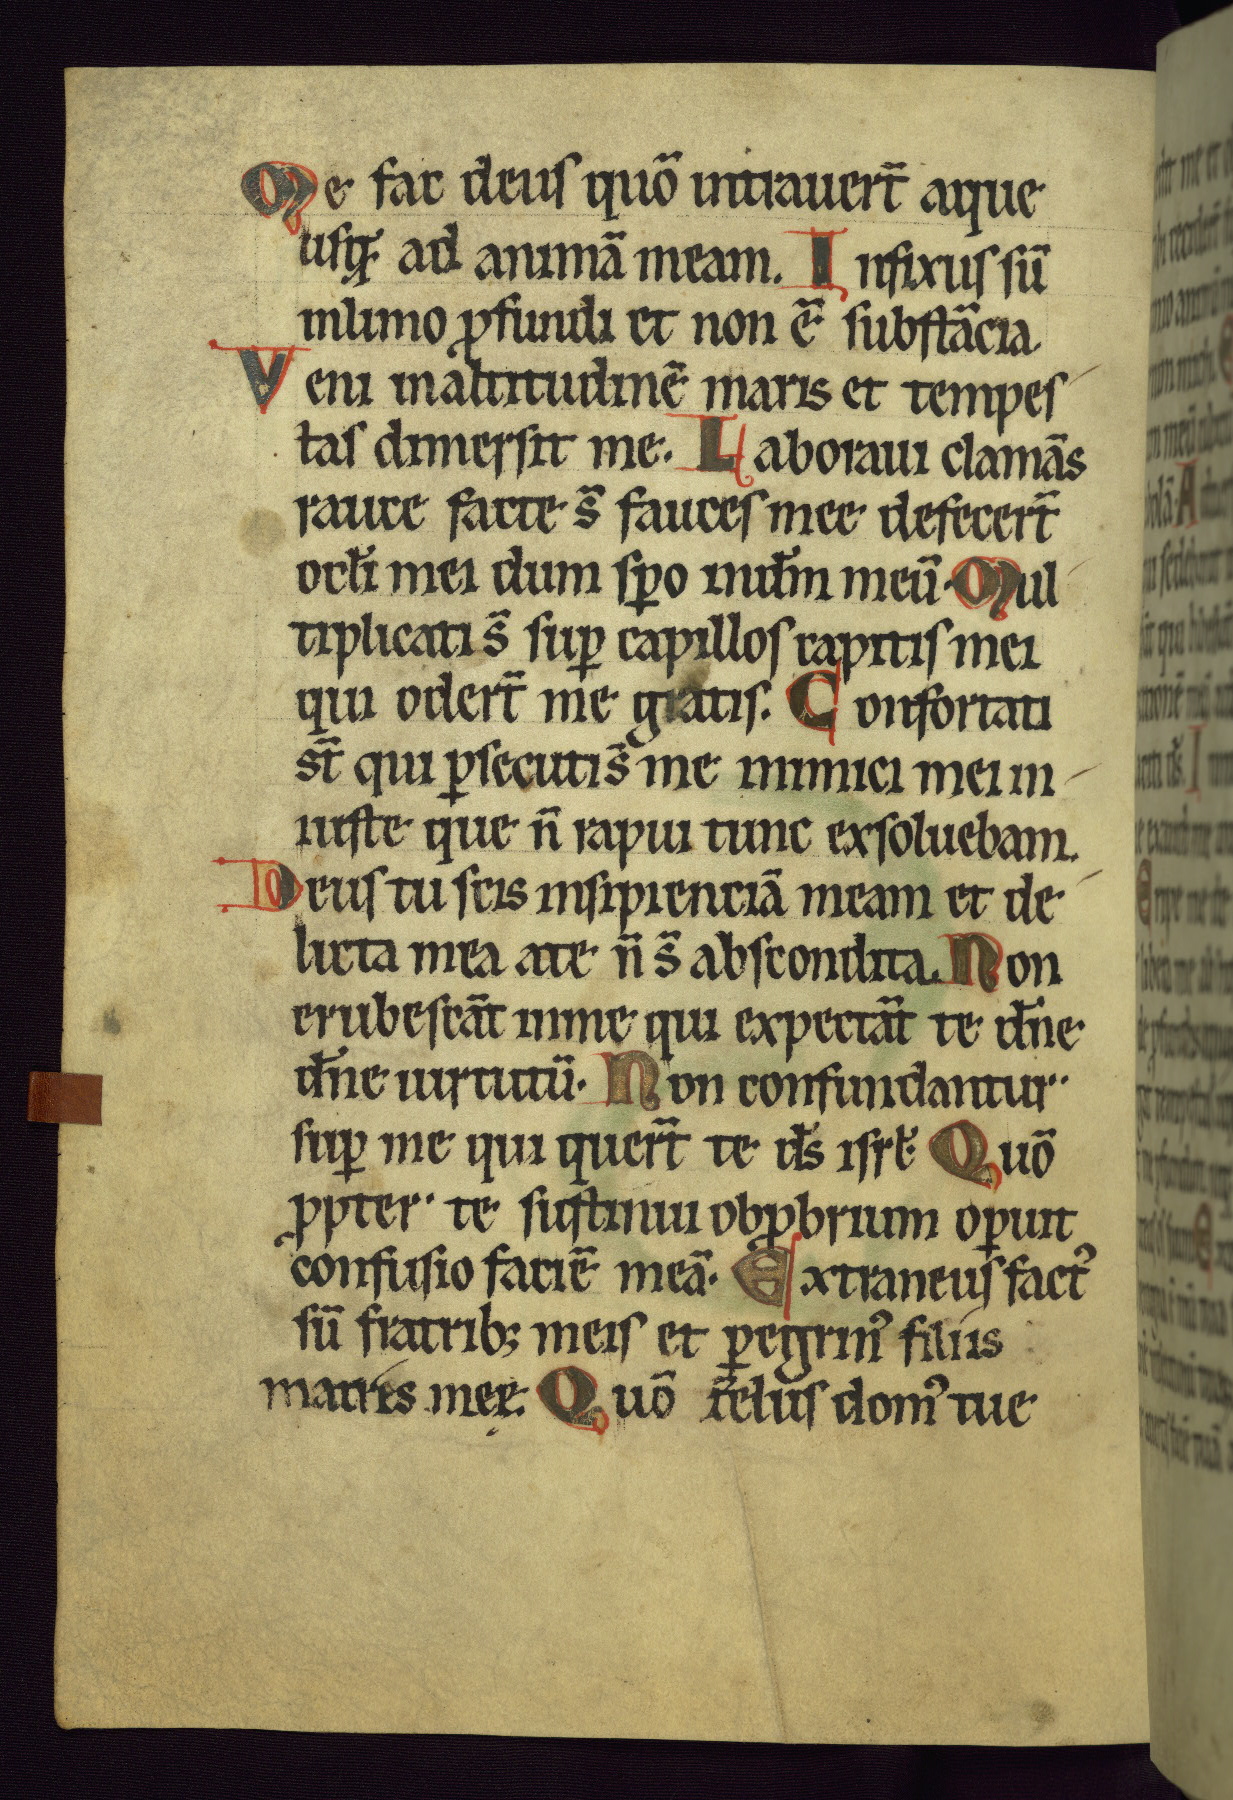 Me fac deus quō intrauert̄ aque
usq; ad animā meam. Infixus sū
inlimo ꝓfundi et non ē substācia
Veni inaltitudinē maris et tempes
tas dimersit me. Laboraui clamās
rauce facte s̄ fauces mee defecert̄
ocl̄i mei dum sꝑo indm̄ meū. Mul
tiplicati s̄ suꝑ capillos capitis mei
qui odert̄ me gratis. Confortati
st̄ qui ꝑsecutis̄ me inimici mei in
iuste que n̄ rapui tunc exsoluebam.
Deus tu scis insipienciā meam et de
licta mea ate n̄ s̄ abscondita. Non
erubescāt inme qui expectāt te dn̄e
dn̄e uirtutū. Non confundantur
suꝑ me qui quert̄ te ds̄ isrl̄ Quō
ꝓpter te sustinui obꝓbrium oꝑuit
confusio faciē meā. Extraneus factꝰ
sū fratrib; meis et ꝑegrinꝰ filiis
matris mee. Quō celus domꝰ tue